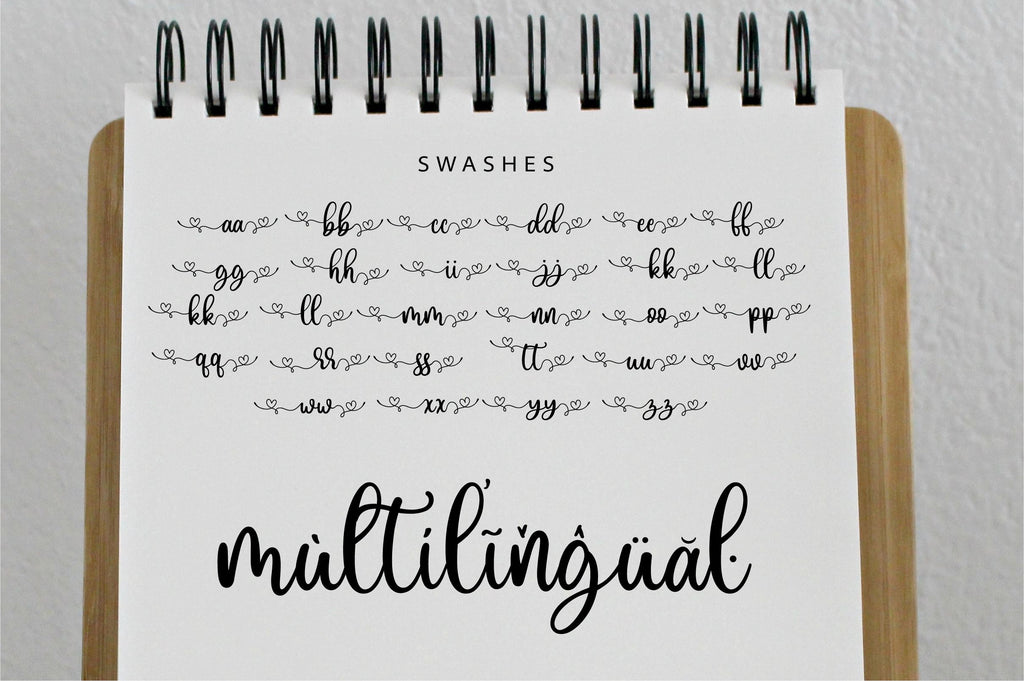 SWASHES
aa bb cc dd ee ff
gg hh ii jj kk ll
kk ll mm nn oo pp
qq rr ss tt uu vv
ww xx yy zz
mùltíľĩňĝüăŀ